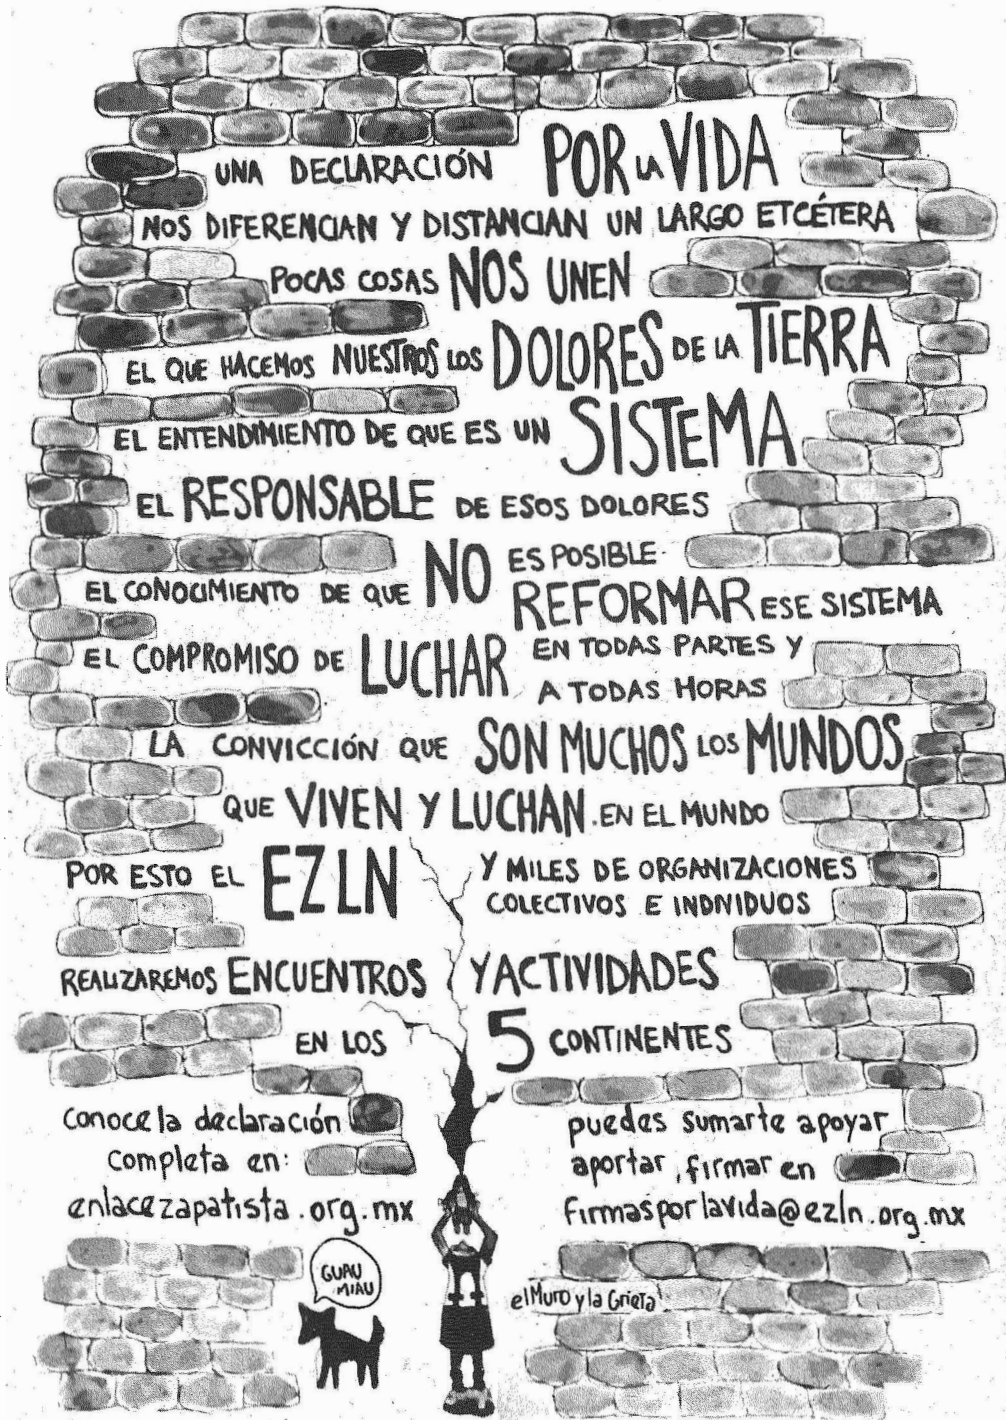 UNA DECLARACIÓN POR LA VIDA
NOS DIFERENCIAN Y DISTANCIAN UN LARGO ETCÉTERA
POCAS COSAS NOS UNEN
EL QUE HACEMOS NUESTROS LOS DOLORES DE LA TIERRA
EL ENTENDIMIENTO DE QUE ES UN SISTEMA
EL RESPONSABLE DE ESOS DOLORES
EL CONOCIMIENTO DE QUE NO ES POSIBLE
REFORMAR ESE SISTEMA
EL COMPROMISO DE LUCHAR EN TODAS PARTES Y
A TODAS HORAS
LA CONVICCIÓN QUE SON MUCHOS LOS MUNDOS
QUE VIVEN Y LUCHAN EN EL MUNDO
POR ESTO EL EZLN Y MILES DE ORGANIZACIONES
COLECTIVOS E INDIVIDUOS
REALIZAREMOS ENCUENTROS Y ACTIVIDADES
EN LOS 5 CONTINENTES
conoce la declaración
completa en:
enlacezapatista.org.mx
puedes sumarte apoyar
aportar, firmar en
firmasporlavida@ezln.org.mx
GUAU
MIAU
el Muro y la Grieta